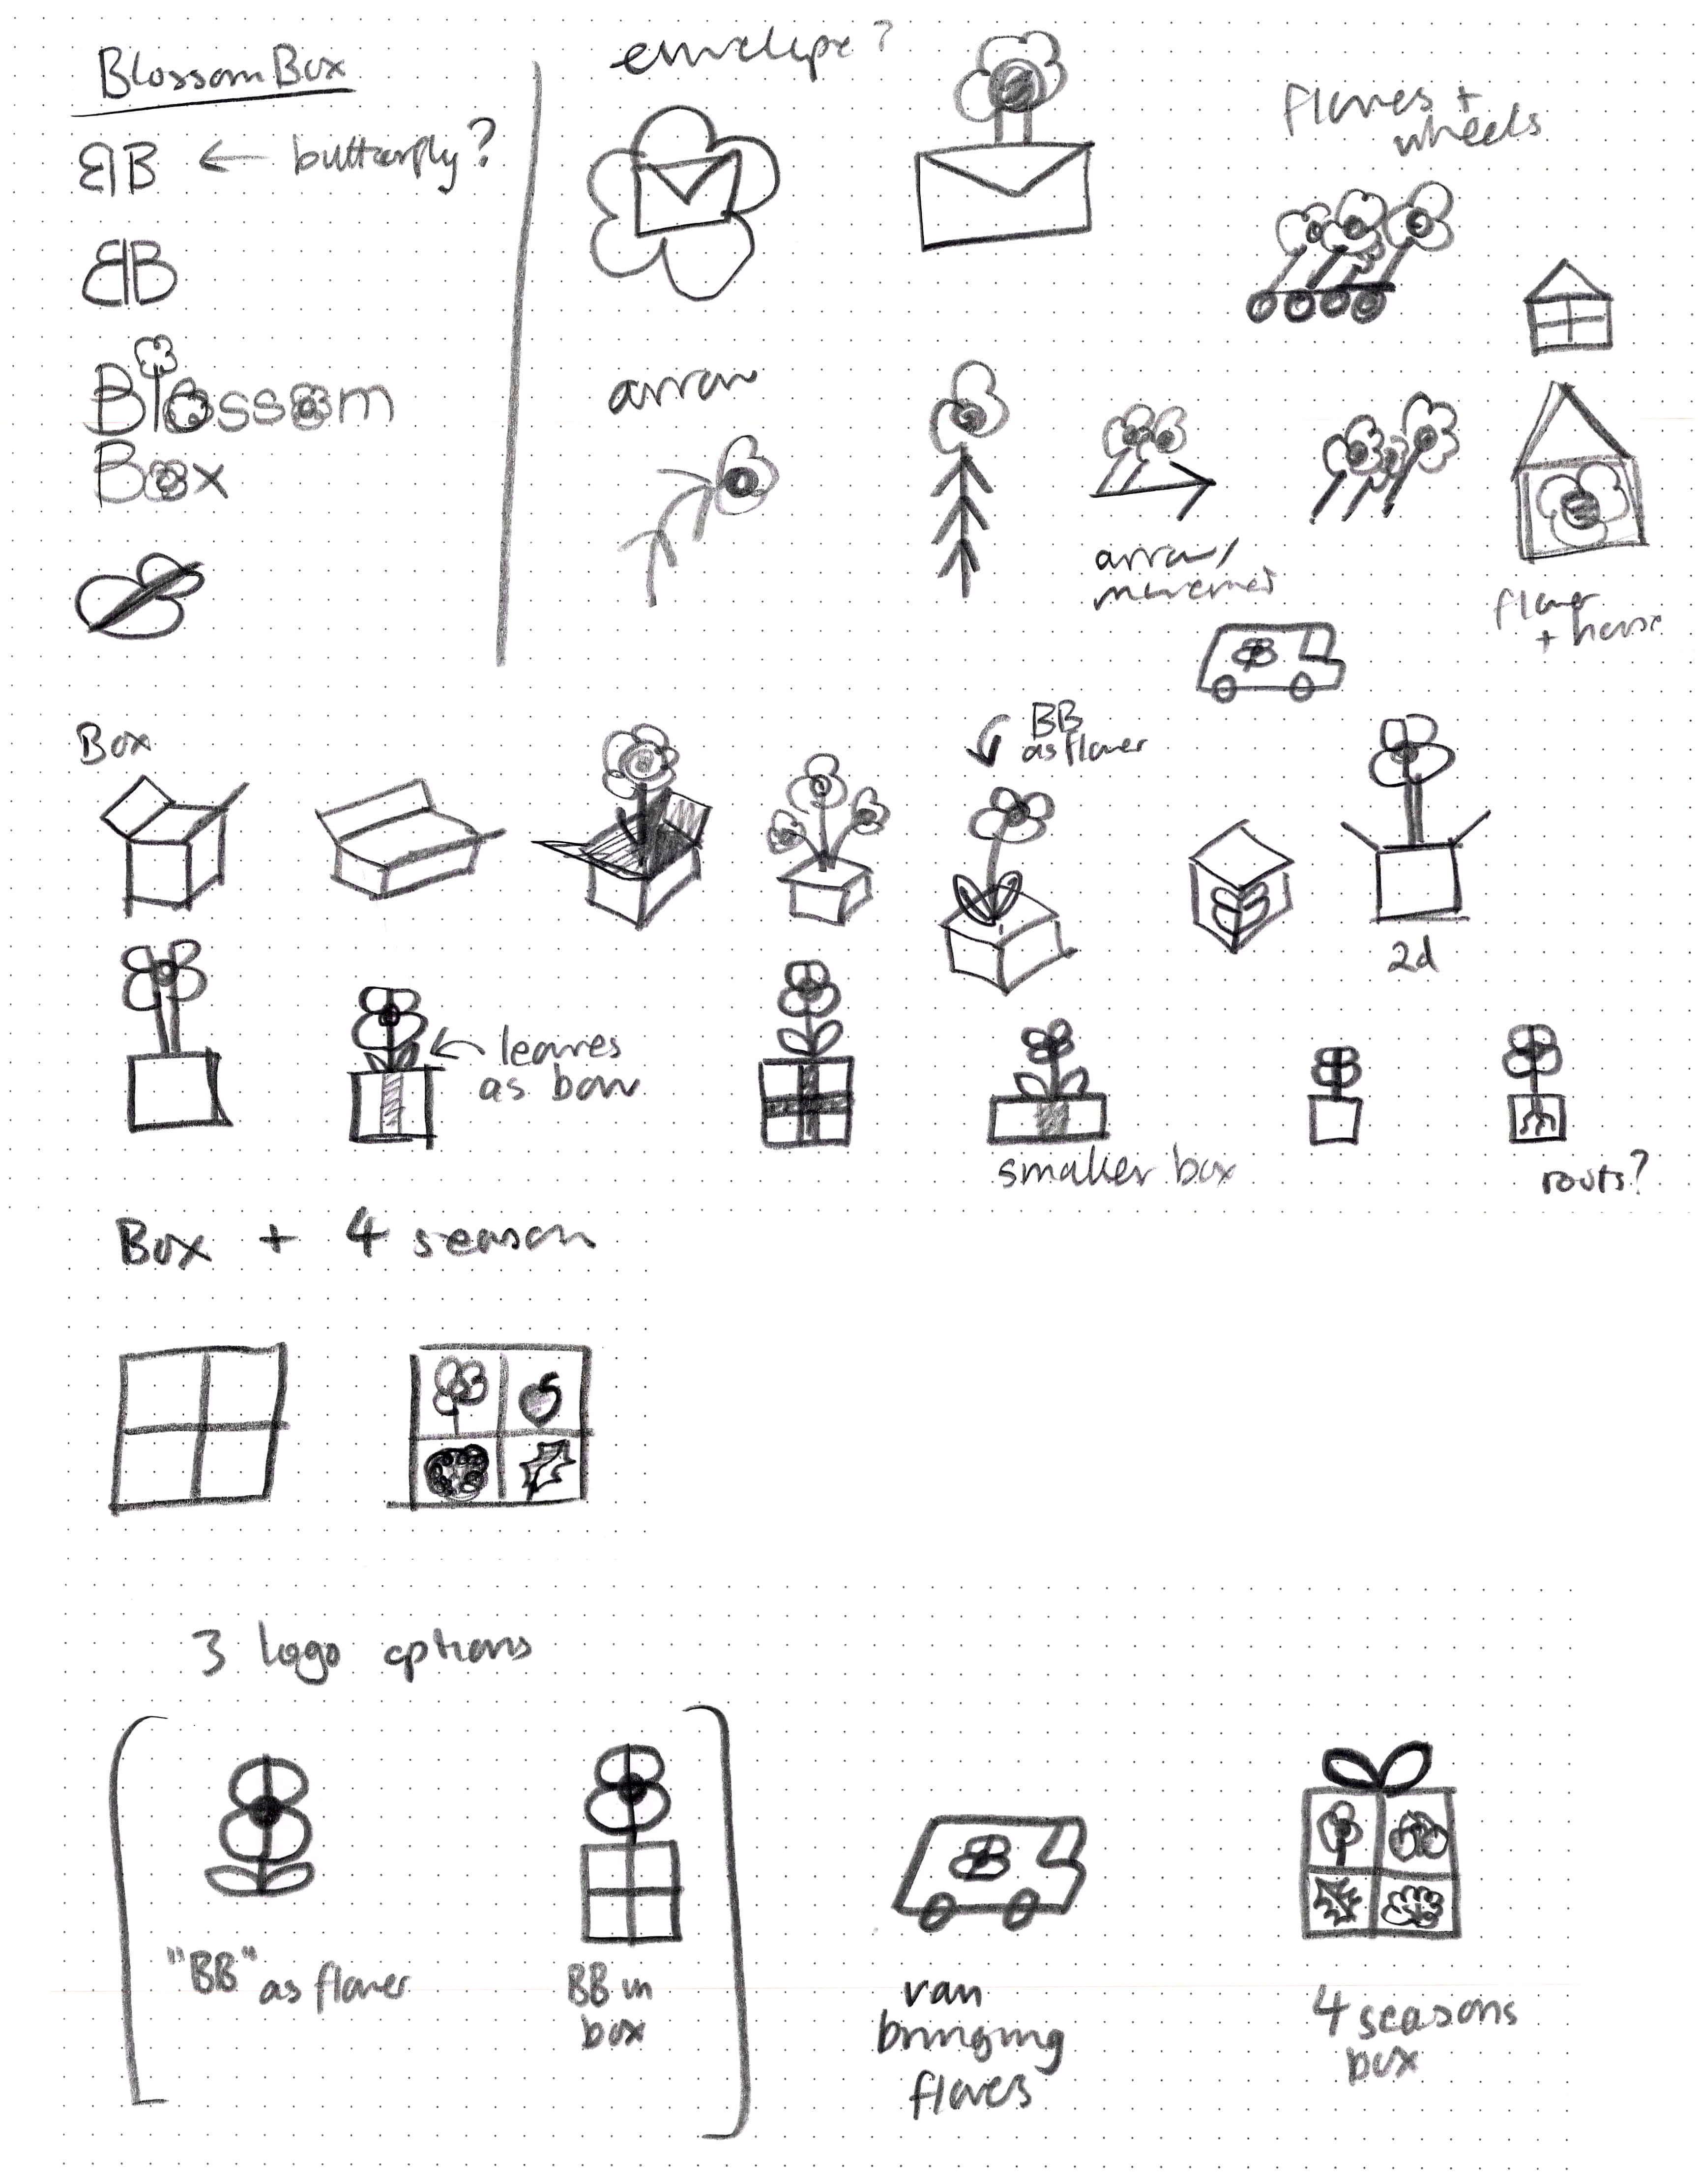 BlossomBox
BB ← butterfly?
BB
Blossom
Box
envelope?
flowers +
wheels
arrow
arrow/
movement
flower
+ house
BB
Box
BB
as flower
2d
← leaves
as bow
smaller box
roots?
Box + 4 season
3 logo options
"BB" as flower
BB in
box
BB
van
bringing
flowers
4 seasons
box